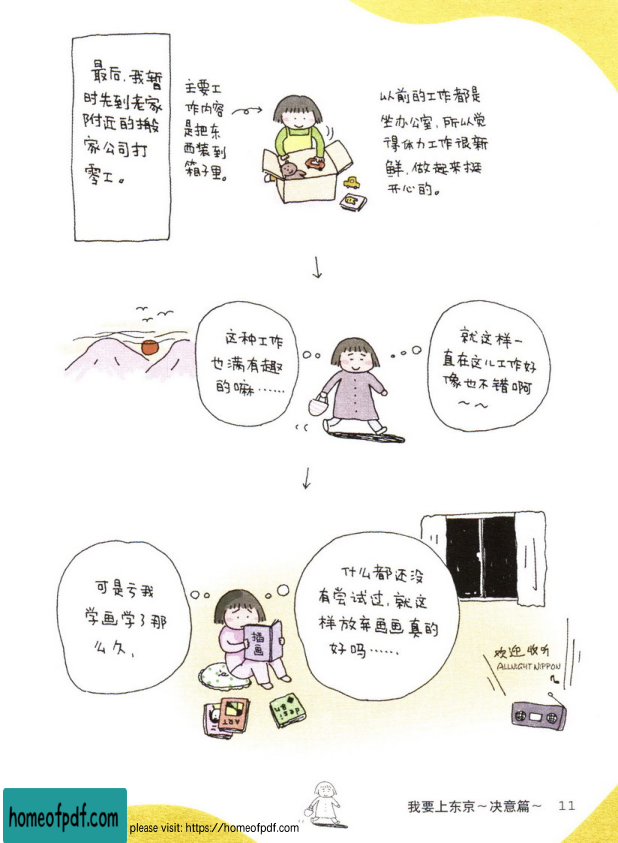 最后，我暂
时先到老家
附近的搬
家公司打
零工。
主要工
作内容
是把东
西装到
箱子里。
以前的工作都是
坐办公室，所以觉
得体力工作很新
鲜，做起来挺
开心的。
这种工作
也满有趣
的嘛……
就这样一
直在这儿工作好
像也不错啊
～～
可是亏我
学画学了那
么久，
什么都还没
有尝试过，就这
样放弃画画真的
好吗……
插画
ART
design
欢迎收听
ALLNIGHT NIPPON
我要上东京～决意篇～ 11
homeofpdf.com
please visit: https://homeofpdf.com